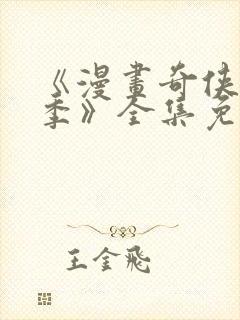 《漫畫奇俠
季》全集免
王金飛